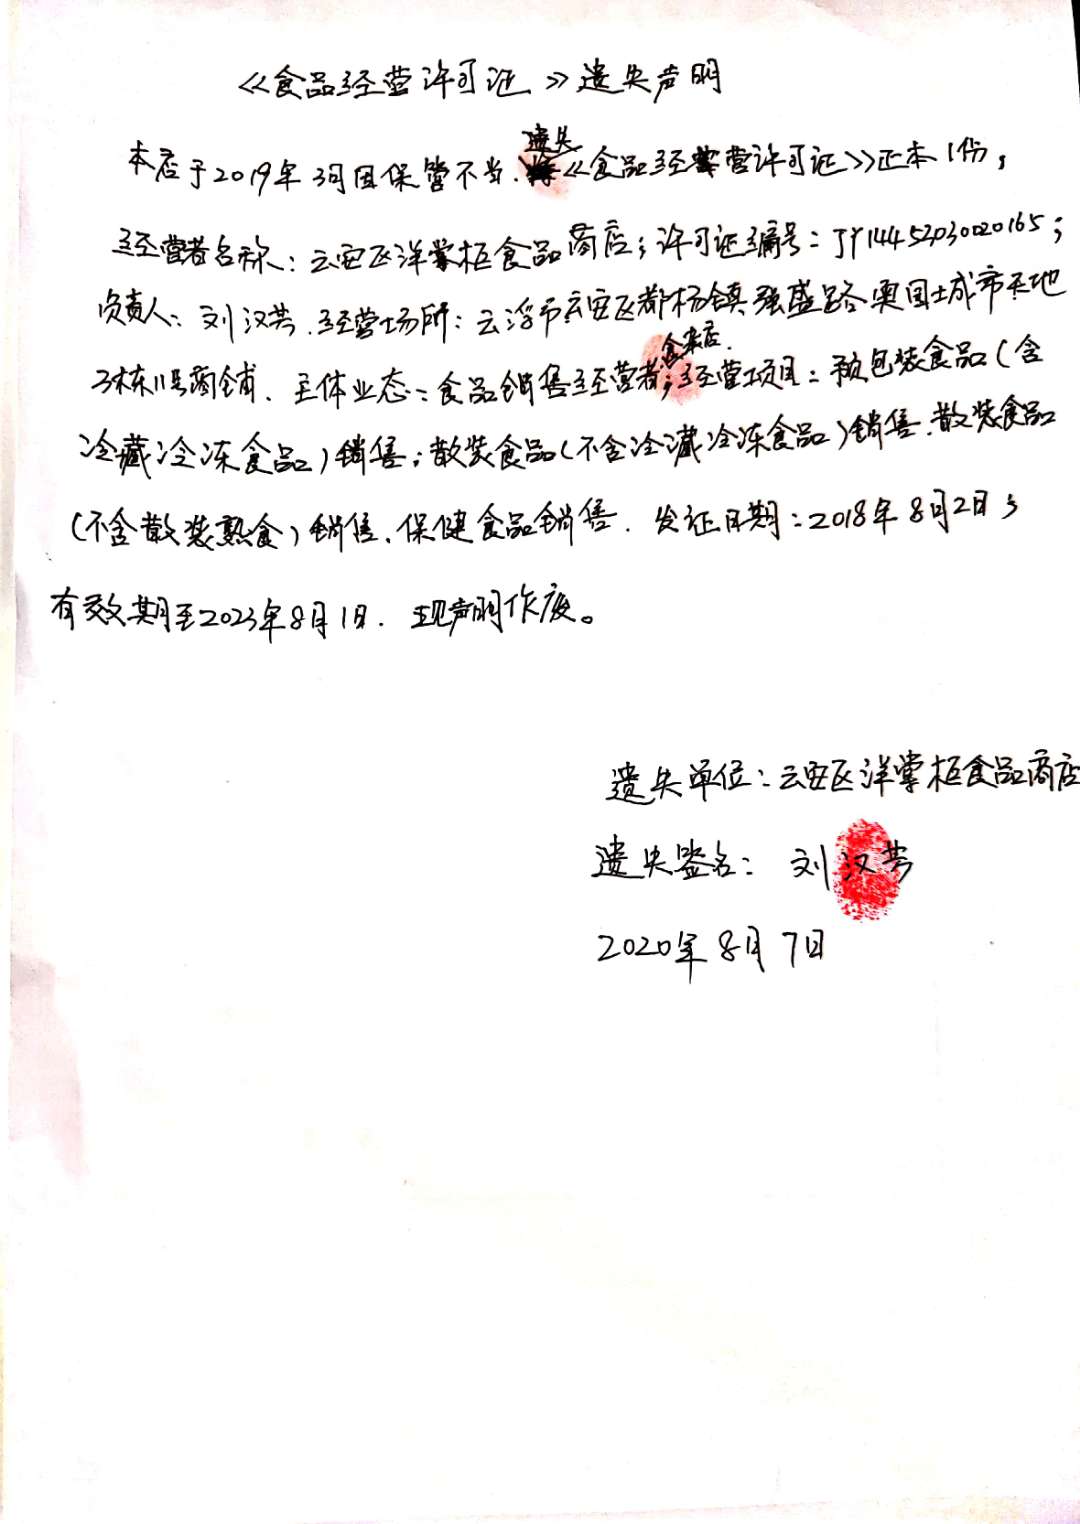 《食品经营许可证》遗失声明
本店于2019年3月因保管不当、遗失《食品经营许可证》正本1份,
经营者名称:云安区洋掌柜食品商店;许可证编号:JY14452030020165;
负责人:刘汉芬、经营场所:云浮市云安区都杨镇强盛路奥园城市天地
3栋 商铺、主体业态:食品销售经营者,食杂店.;经营项目:预包装食品(含
冷藏冷冻食品)销售;散装食品(不含冷藏冷冻食品)销售、散装食品
(不含散装熟食)销售、保健食品销售. 发证日期:2018年8月2日;
有效期至2023年8月1日. 现声明作废。
遗失单位:云安区洋掌柜食品商店
遗失签名: 刘汉芬
2020年8月7日